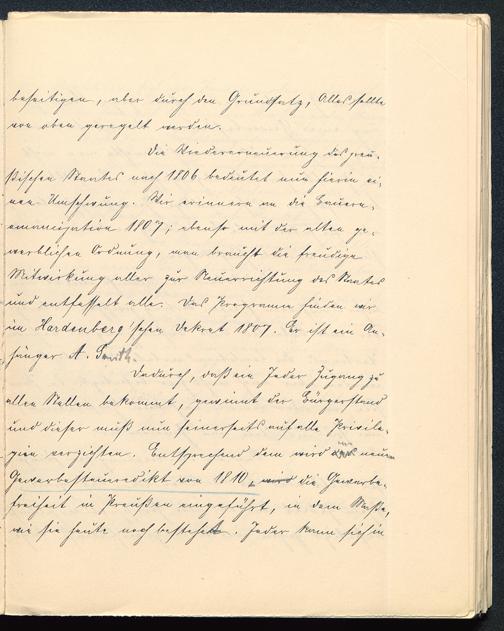 beseitigen, aber durch den Grundsatz, Alles sollte
von oben geregelt werden.
Die Wiedererneuerung des preu-
ßischen Staates nach 1806 bedeutet nun hierin ei-
nen Umschwung. Wir erinnern an die Bauern-
emancipation 1807; ebenso mit der alten ge-
werblichen Ordnung, man braucht die freudige
Mitwirkung aller zur Neuerrichtung des Staates
und entfesselt alle. Das Programm finden wir
im Hardenberg'schen Dekret 1807. Er ist ein An-
hänger A. Smith.
Dadurch, daß ein Jeder Zugang zu
allen Stellen bekommt, gewinnt der Bürgerstand
und dieser muß nun seinerseits auf alle Privile-
gien verzichten. Entsprechend dem wird neuen
Gewerbesteueredikt von 1810 wird die Gewerbe-
freiheit in Preußen eingeführt, in dem Maße,
wie sie heute noch besteht. Jeder kann sich in